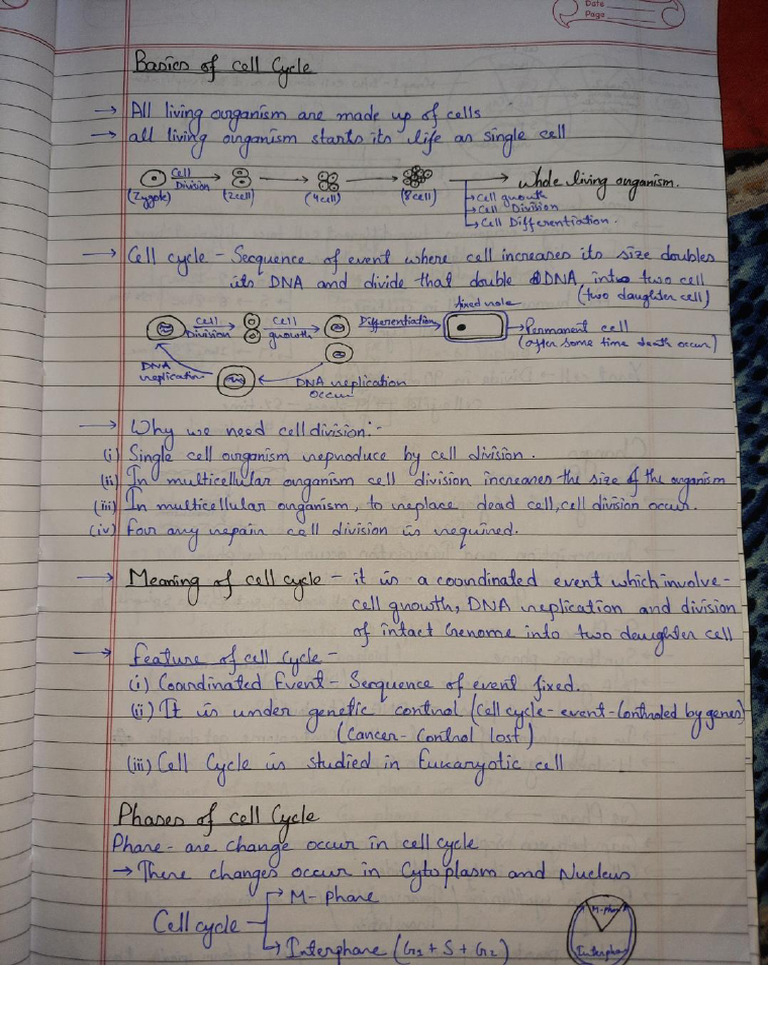 Date
Page
Basics of cell Cycle
→ All living organism are made up of cells
→ all living organism starts its life as single cell
Cell Division
(Zygote) (2cell) (4cell) (8cell) whole living organism.
→ Cell growth
→ Cell Division
→ Cell Differentiation.
→ Cell cycle - Sequence of event where cell increases its size doubles
its DNA and divide that double DNA into two cell
(two daughter cell)
Cell Division → Cell growth → Differentiation → fixed role → Permanent cell
(after some time death occur)
DNA replication
DNA replication occur
→ Why we need cell division:-
(i) Single cell organism reproduce by cell division.
(ii) In multicellular organism cell division increases the size of the organism
(iii) In multicellular organism, to replace dead cell, cell division occur.
(iv) For any repair cell division is required.
→ Meaning of cell cycle - it is a coordinated event which involve-
cell growth, DNA replication and division
of intact Genome into two daughter cell
→ Feature of cell cycle -
(i) Coordinated Event - Sequence of event fixed.
(ii) It is under genetic control (cell cycle - event - Controlled by genes)
(Cancer - Control lost)
(iii) Cell Cycle is studied in Eukaryotic cell
Phases of cell Cycle
Phase - are change occur in cell cycle
→ There changes occur in Cytoplasm and Nucleus
→ M- Phase
Cell cycle
→ Interphase (G1 + S + G2)
M-phase
Interphase